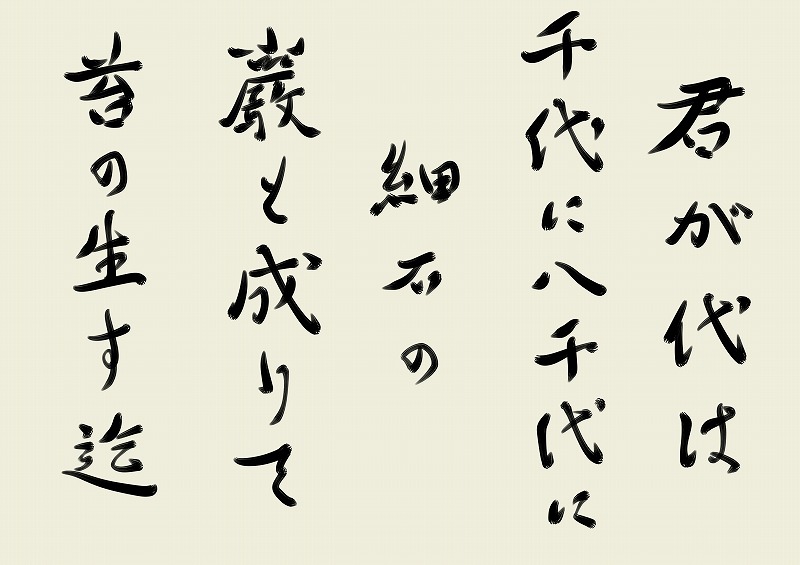 君が代は
千代に八千代に
細石の
巌と成りて
苔の生す迄